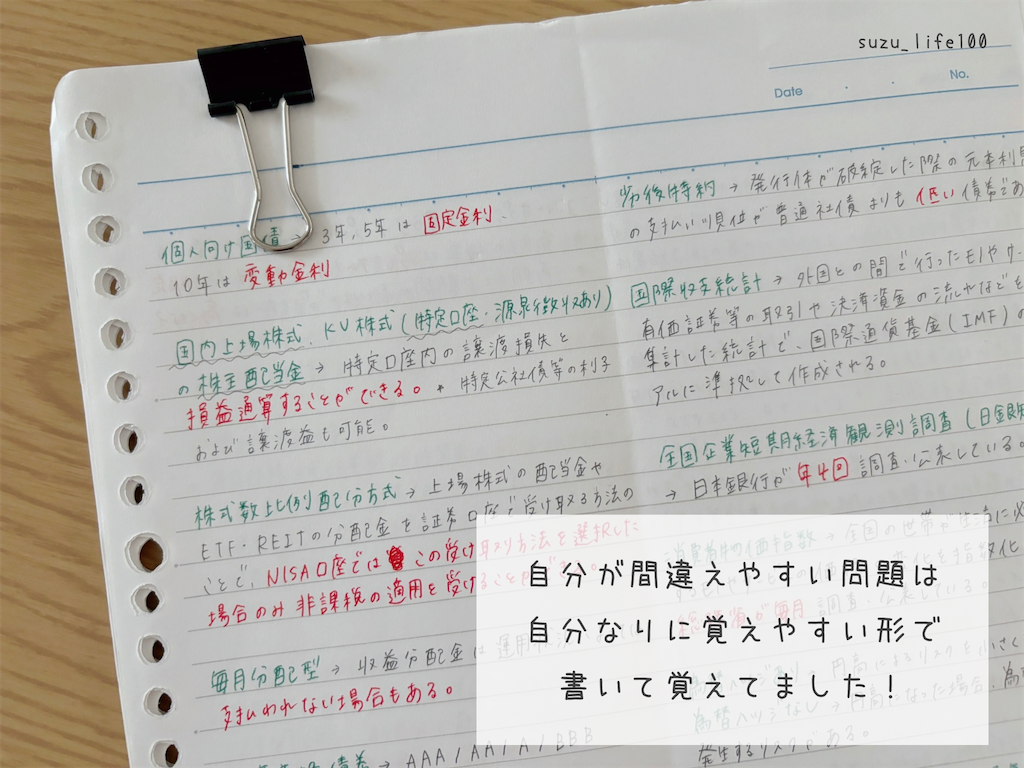 suzu_life100
Date
No.
個人向け国債 → 3年,5年は 固定金利.
10年は 変動金利
国内上場株式、KV株式(特定口座・源泉徴収あり)
の株主配当金 → 特定口座内の譲渡損失と
損益通算することができる。 * 特定公社債等の利子
および譲渡益も可能。
株式数比例配分方式 → 上場株式の配当金や
ETF・REITの分配金を証券口座で受け取る方法の
ことで、NISA口座では この受け取り方法を選択した
場合のみ非課税の適用を受けることができる。
毎月分配型 → 収益分配金は運用
支払われない場合もある。
AAA/AA/A/BBB
劣後特約 → 発行体が破綻した際の元本利息
の支払い順位が普通社債よりも低い債券であ
国際収支統計 → 外国との間で行ったモノやサー
有価証券等の取引や決済資金の流れなどを
集計した統計で、国際通貨基金(IMF)の
アルに準拠して作成される。
全国企業短期経済観測調査(日銀短
→ 日本銀行が年4回 調査・公表している。
消費者物価指数 → 全国の世帯が生活に必
変化を指数化
総務省が毎月 調査・公表している。
為替ヘッジあり → 円高によるリスクを小さく
為替ヘッジなし → 円高になった場合、為
発生するリスクがある。
自分が間違えやすい問題は
自分なりに覚えやすい形で
書いて覚えてました!